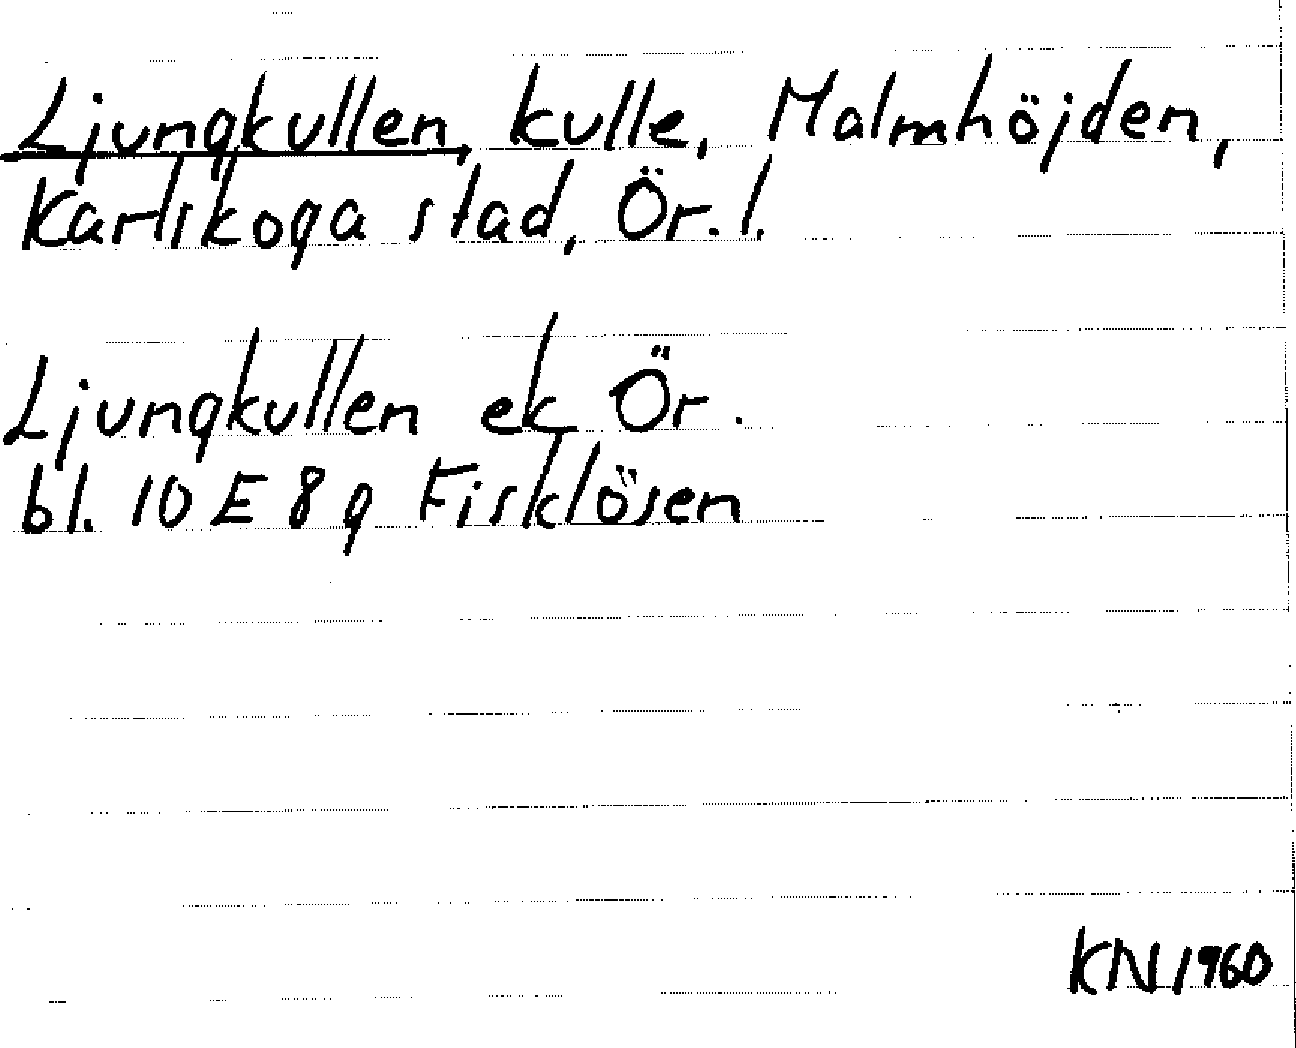 Ljungkullen, kulle, Malmhöjden,
Karlskoga stad, Ör. l.
Ljungkullen ek Ör.
bl. 10 E 8 g Fisklösen
KN 1960